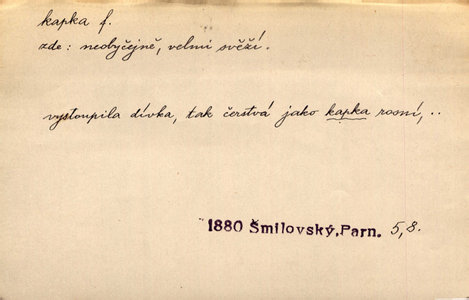 kapka f.
zde: neobyčejně, velmi svěží.
vystoupila dívka, tak čerstvá jako kapka rosní, ..
1880 Šmilovský, Parn. 5,8.